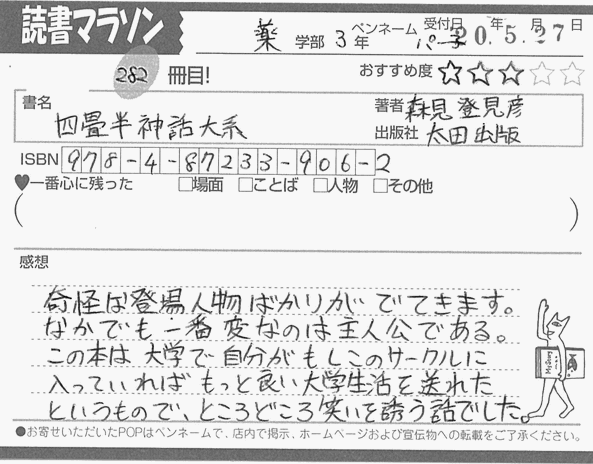 読書マラソン
薬 学部 3年 ペンネーム パ子 受付日 20.年5.月27日
282 冊目! おすすめ度 ☆☆☆☆☆
書名 四畳半神話大系
著者 森見登見彦
出版社 太田出版
ISBN 978-4-87233-906-2
♥一番心に残った □場面 □ことば □人物 □その他
( )
感想
奇怪な登場人物ばかりがでてきます。
なかでも一番変なのは主人公である。
この本は大学で自分がもしこのサークルに
入っていればもっと良い大学生活を送れた
というもので、ところどころ笑いを誘う話でした。
●お寄せいただいたPOPはペンネームで、店内で掲示、ホームページおよび宣伝物への転載をご了承ください。